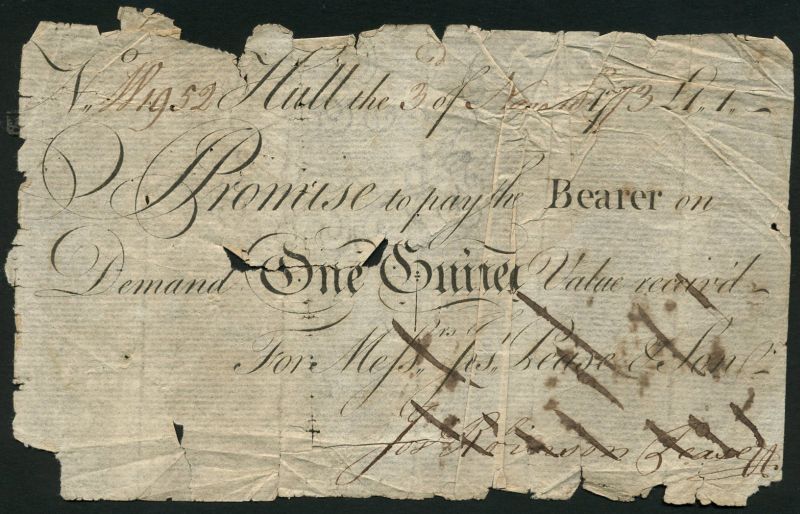 No. W1952 Hull the 3d of 1773 £1„1„-
I Promise to pay the Bearer on
Demand One Guinea Value receiv'd
For Messrs. Jos. Pease & Son
Jos Robinson Pease